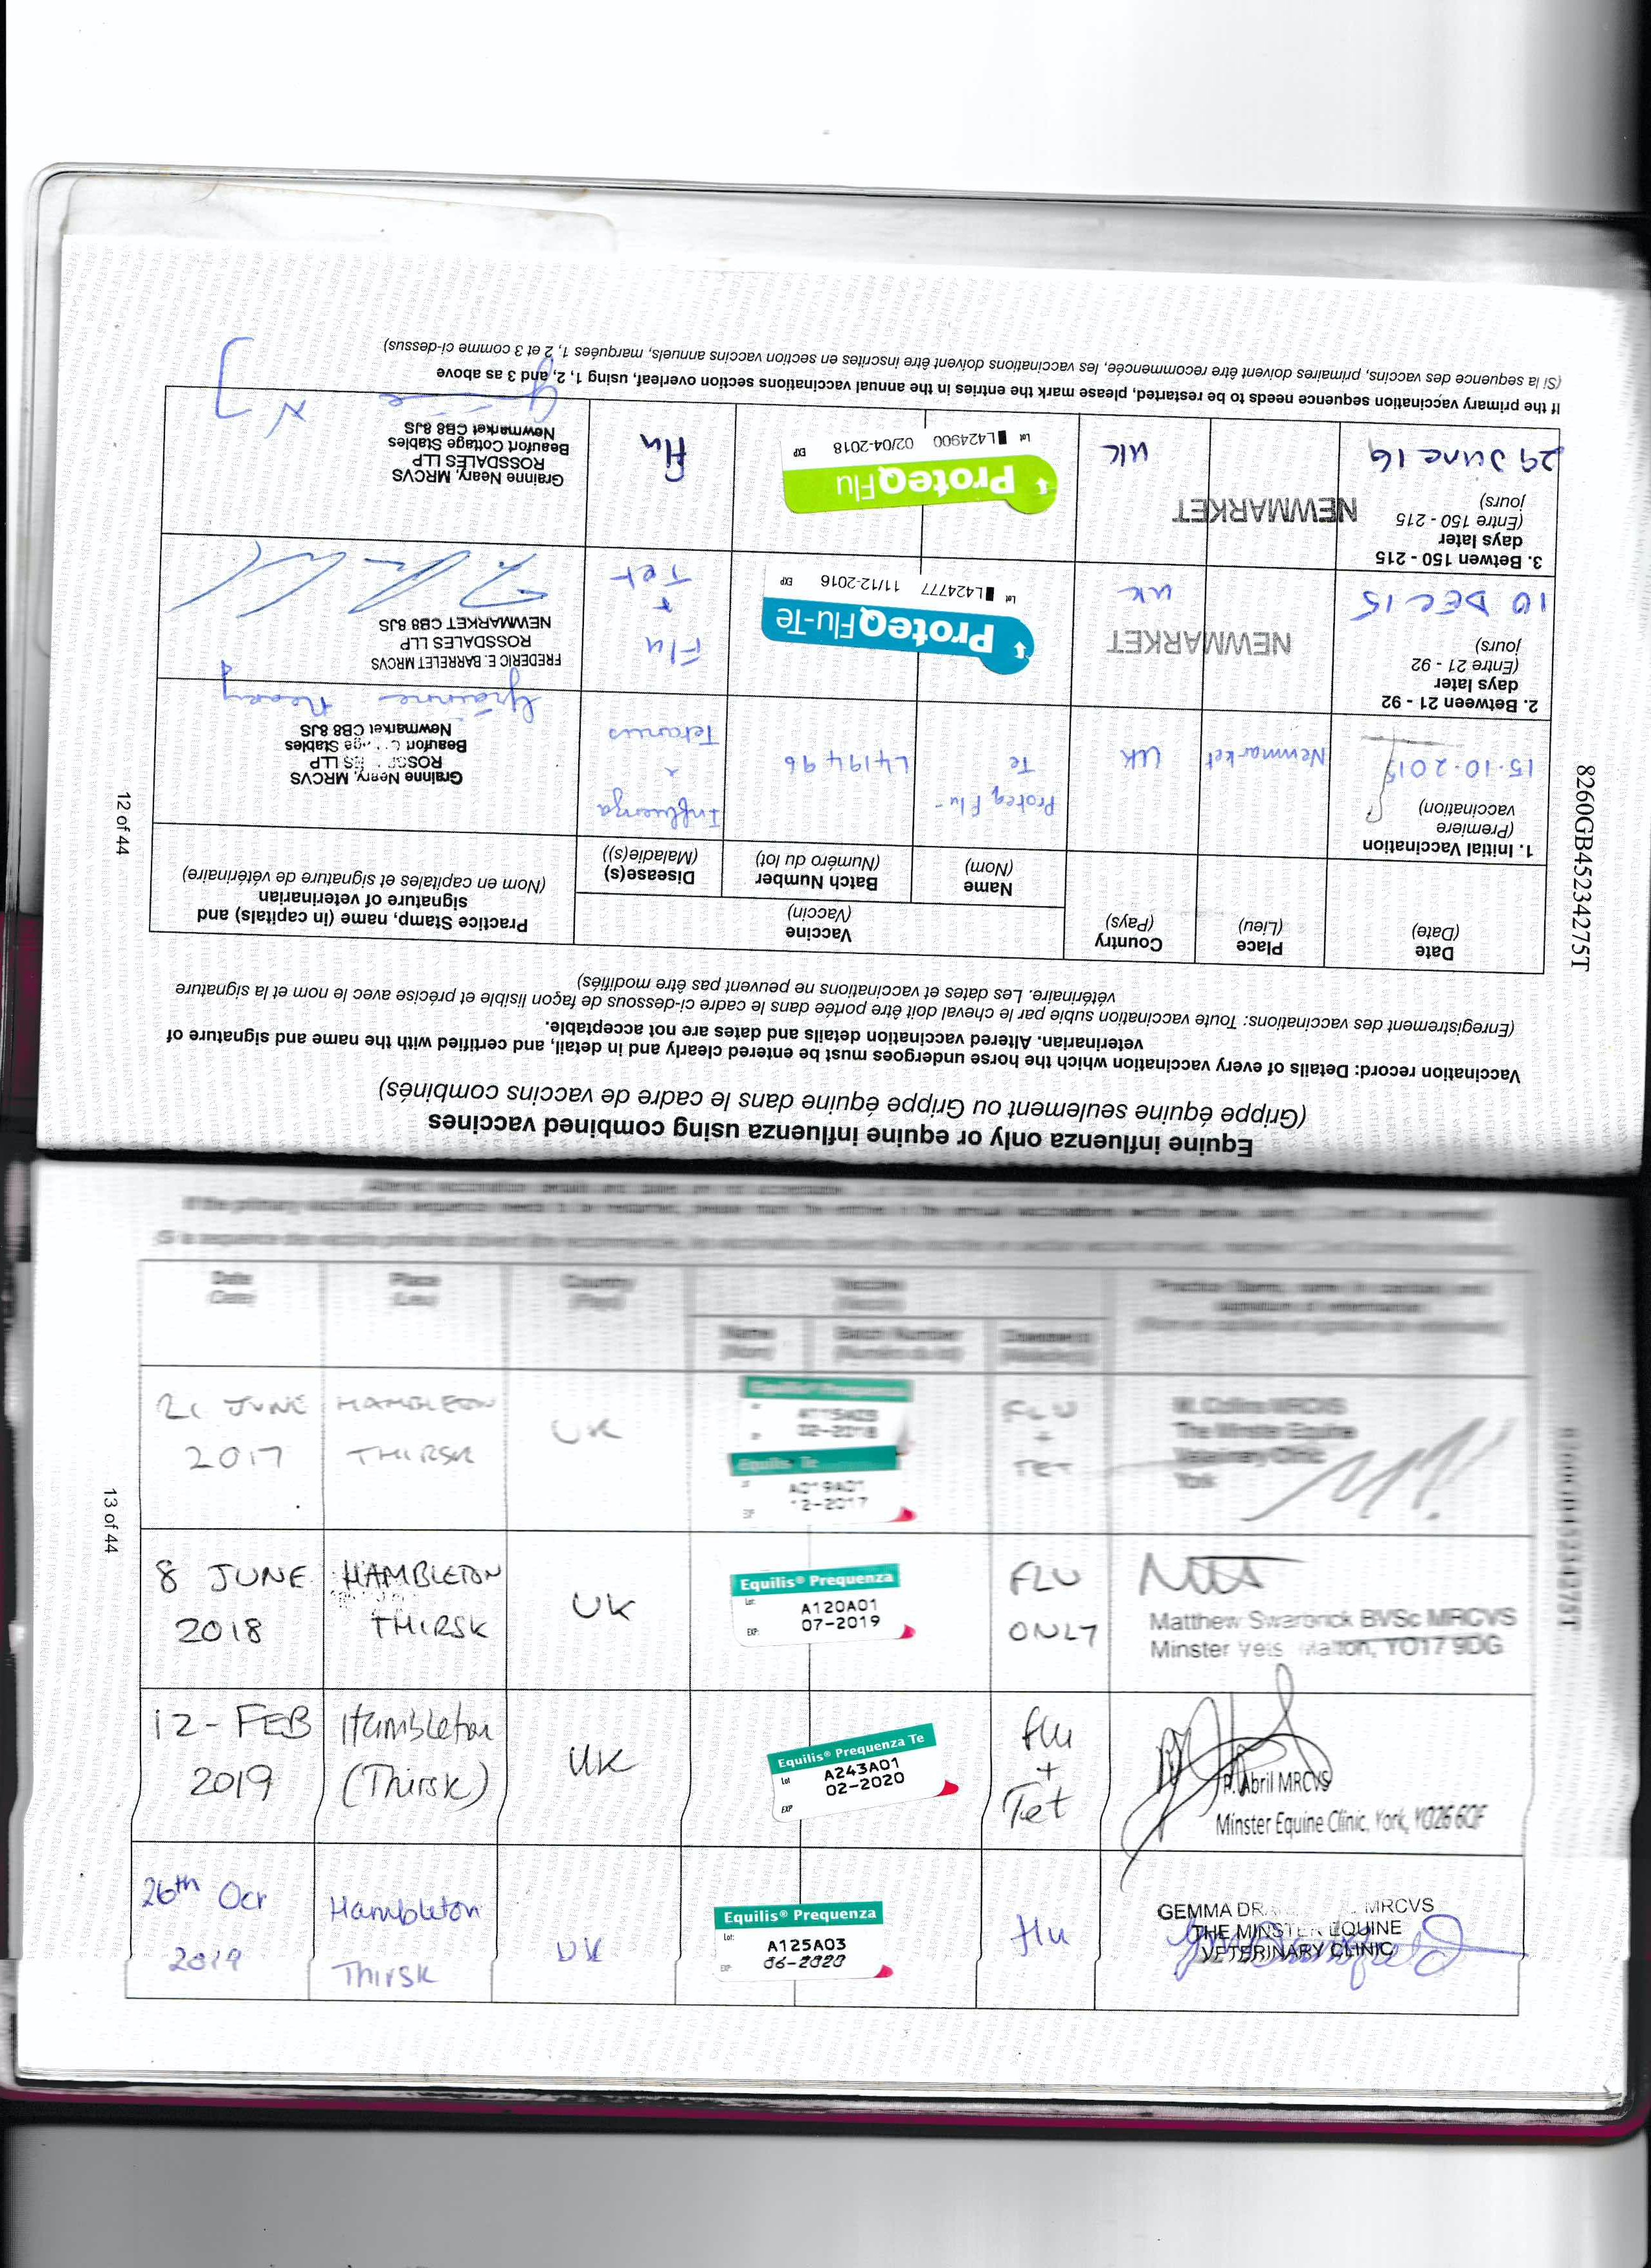 Equine influenza only or equine influenza using combined vaccines
(Grippe équine seulement ou Grippe équine dans le cadre de vaccins combinés)
Vaccination record: Details of every vaccination which the horse undergoes must be entered clearly and in detail, and certified with the name and signature of
veterinarian. Altered vaccination details and dates are not acceptable.
(Enregistrement des vaccinations: Toute vaccination subie par le cheval doit être portée dans le cadre ci-dessous de façon lisible et précise avec le nom et la signature
vétérinaire. Les dates et vaccinations ne peuvent pas être modifiés)
Date
(Date)
Place
(Lieu)
Country
(Pays)
Vaccine
(Vaccin)
Name
(Nom)
Batch Number
(Numéro du lot)
Disease(s)
(Maladie(s))
Practice Stamp, name (in capitals) and
signature of veterinarian
(Nom en capitales et signature de vétérinaire)
1. Initial Vaccination
(Premiere
vaccination)
15.10.2015
Newmarket
UK
Proteq Flu-
Te
L419496
Influenza
+
Tetanus
Grainne Neary, MRCVS
LLP
Beaufort Stables
Newmarket CB8 8JS
Grainne Neary
2. Between 21 - 92
days later
(Entre 21 - 92
jours)
10 DEC 15
NEWMARKET
UK
ProteqFlu-Te
Lot L424777 11/12-2016 EXP
Flu
+
Tet
FREDERIC E. BARRELET MRCVS
ROSSDALES LLP
NEWMARKET CB8 8JS
3. Betwen 150 - 215
days later
(Entre 150 - 215
jours)
29 June 16
NEWMARKET
UK
ProteqFlu
Lot L424900 02/04-2018 EXP
Flu
Grainne Neary, MRCVS
ROSSDALES LLP
Beaufort Cottage Stables
Newmarket CB8 8JS
If the primary vaccination sequence needs to be restarted, please mark the entries in the annual vaccinations section overleaf, using 1, 2, and 3 as above
(Si la sequence des vaccins, primaires doivent être recommencée, les vaccinations doivent être inscrites en section vaccins annuels, marquées 1, 2 et 3 comme ci-dessus)
12 of 44
8260GB45234275T
Date
(Date)
Place
(Lieu)
Country
(Pays)
Vaccine
(Vaccin)
Name
(Nom)
Batch Number
(Numéro du lot)
Disease(s)
(Maladie(s))
21 JUNE
2017
HAMBLETON
THIRSK
UK
Equilis® Prequenza
02-2018
Equilis Te
A019A01
12-2017
FLU
+
TET
M. Collins MRCVS
The Minster Equine
Veterinary Clinic
York
8 JUNE
2018
HAMBLETON
THIRSK
UK
Equilis® Prequenza
Lot: A120A01
EXP: 07-2019
FLU
ONLY
Matthew Swarbrick BVSc MRCVS
Minster Vets Malton, YO17 9DG
12-FEB
2019
Hambleton
(Thirsk)
UK
Equilis® Prequenza Te
Lot A243A01
EXP 02-2020
Flu
+
Tet
P. Abril MRCVS
Minster Equine Clinic, York, YO26 6QF
26th Oct
2019
Hambleton
Thirsk
UK
Equilis® Prequenza
Lot: A125A03
EXP: 06-2020
flu
GEMMA MRCVS
THE MINSTER EQUINE
VETERINARY CLINIC
13 of 44